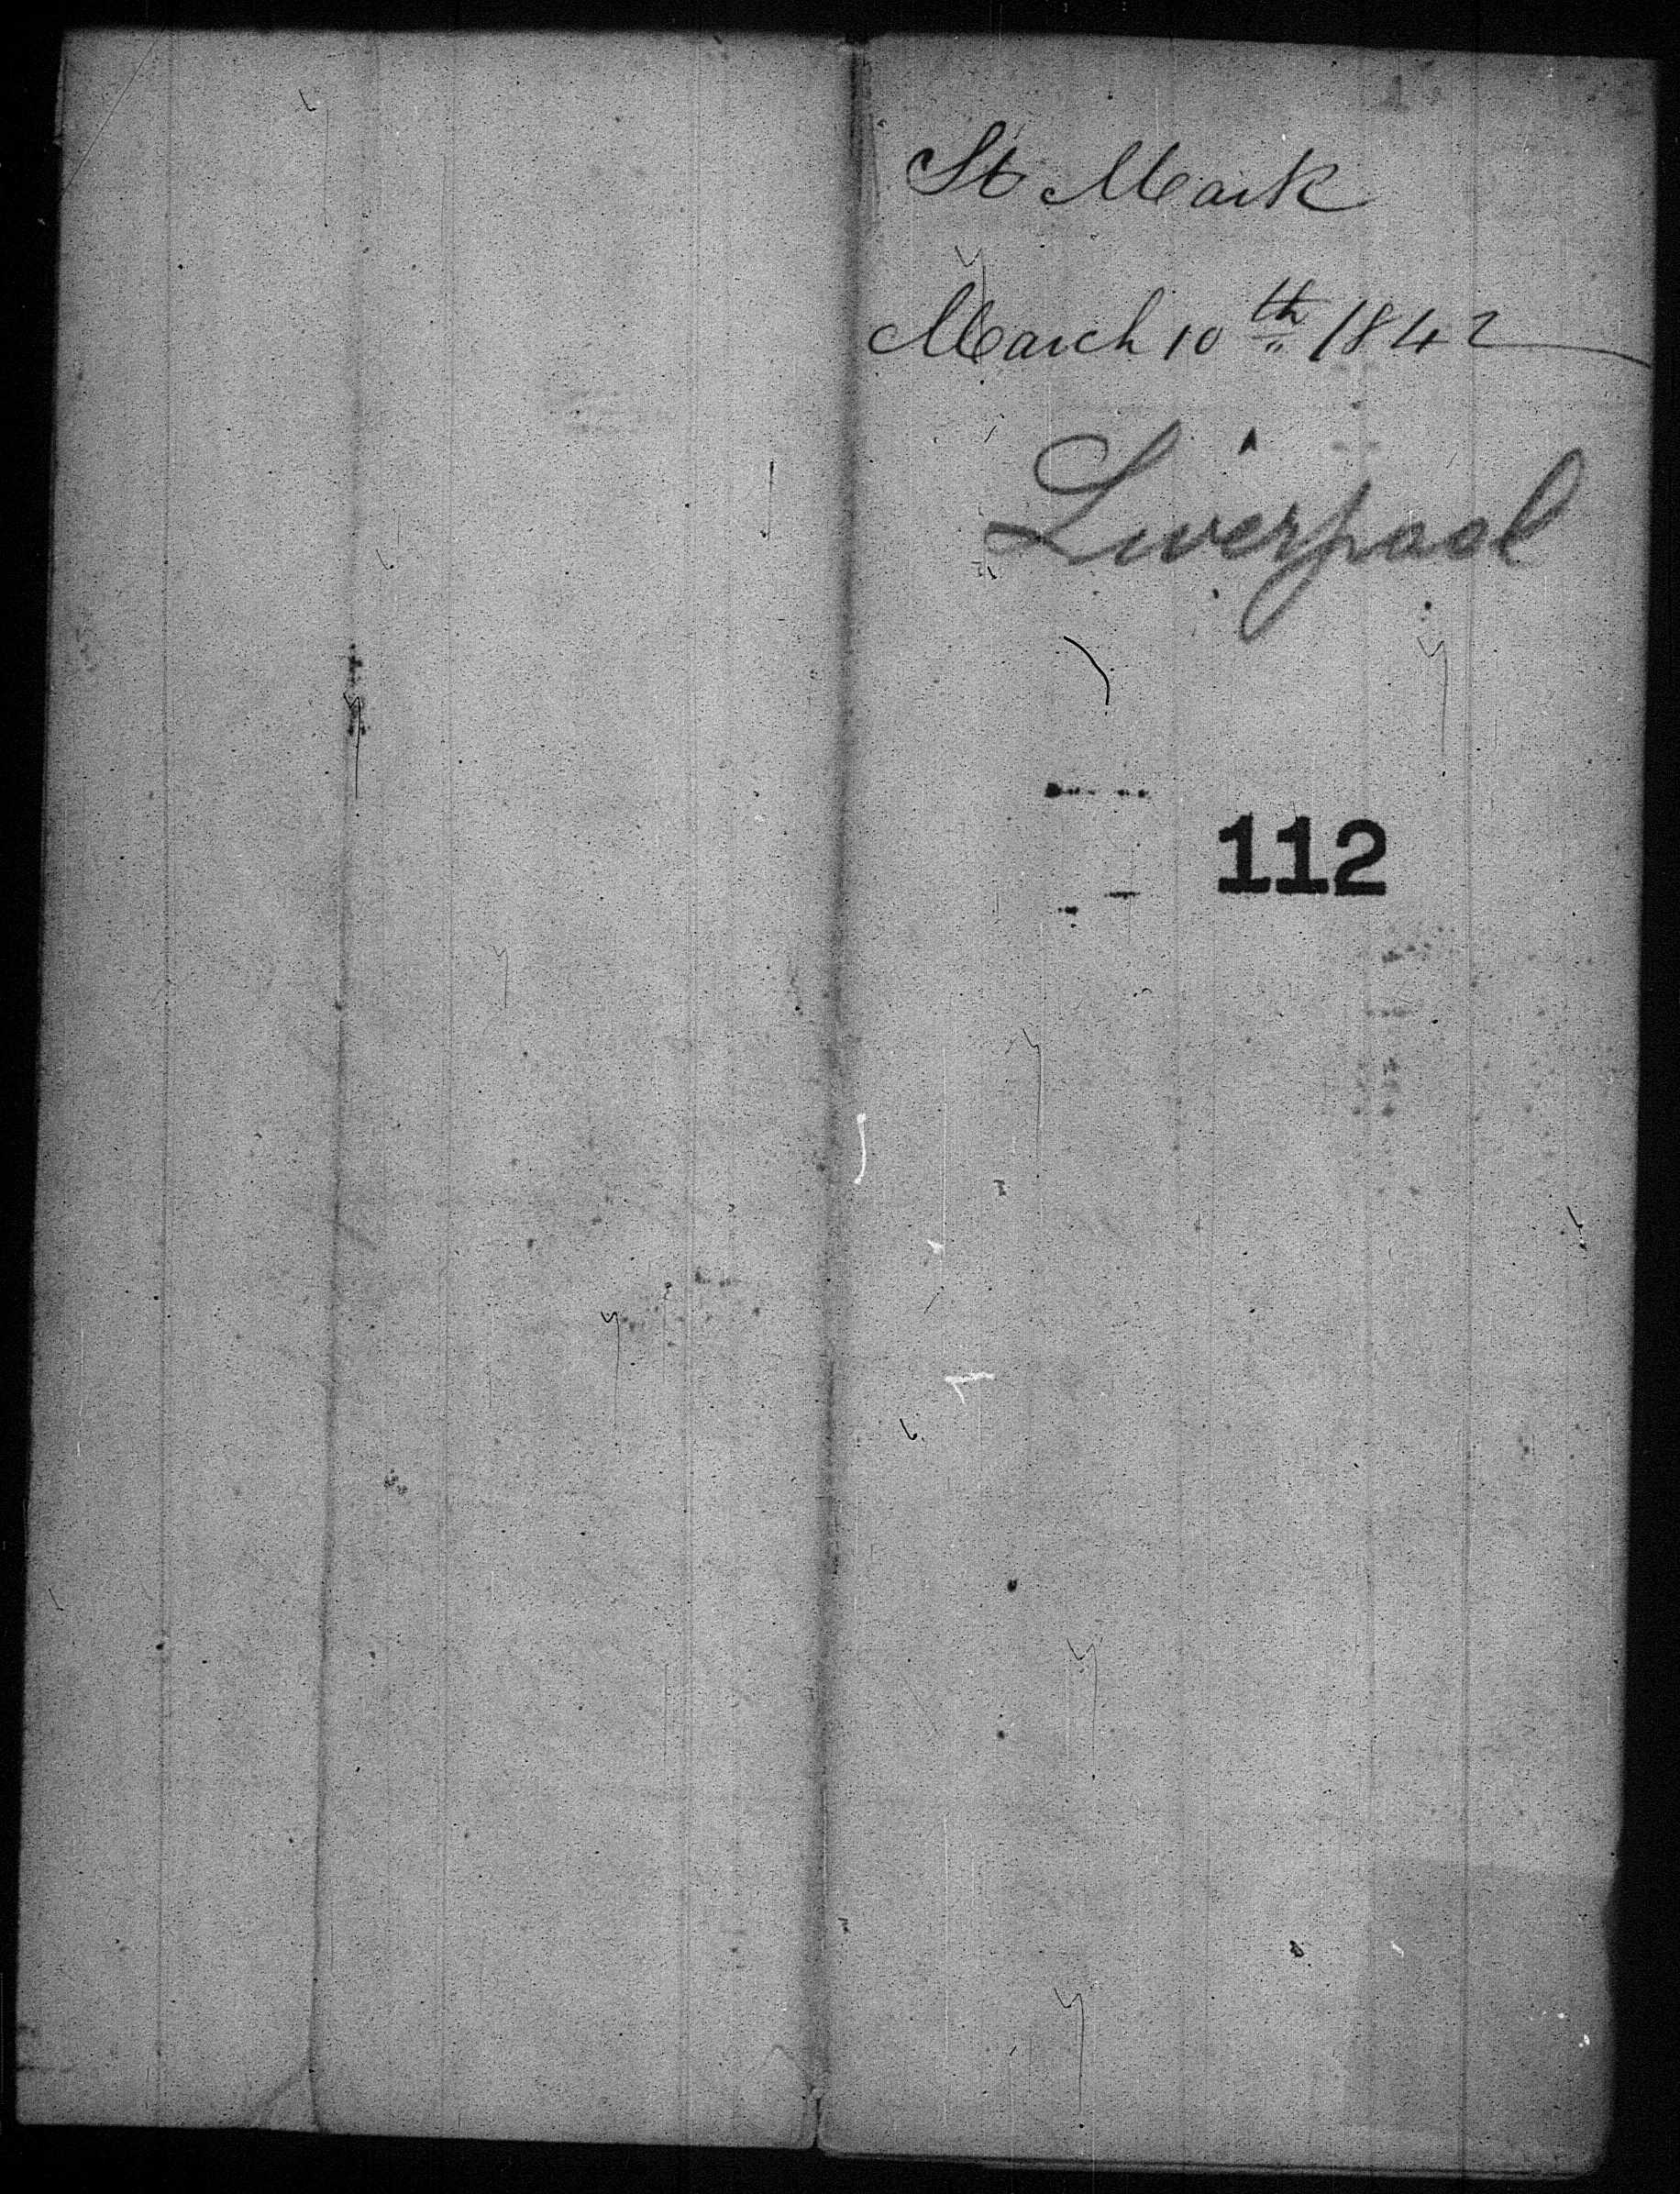 St Mark
March 10th 1842
Liverpool
112